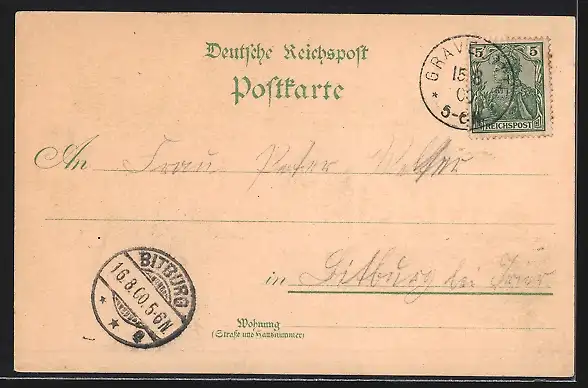 Deutsche Reichspost
Postkarte
5 5
REICHSPOST
GRAV
15 8
5-6N
An Frau Peter
in Bitburg bei Trier
BITBURG
16.8.00.5-6N
* * a
Wohnung
(Straße und Hausnummer)